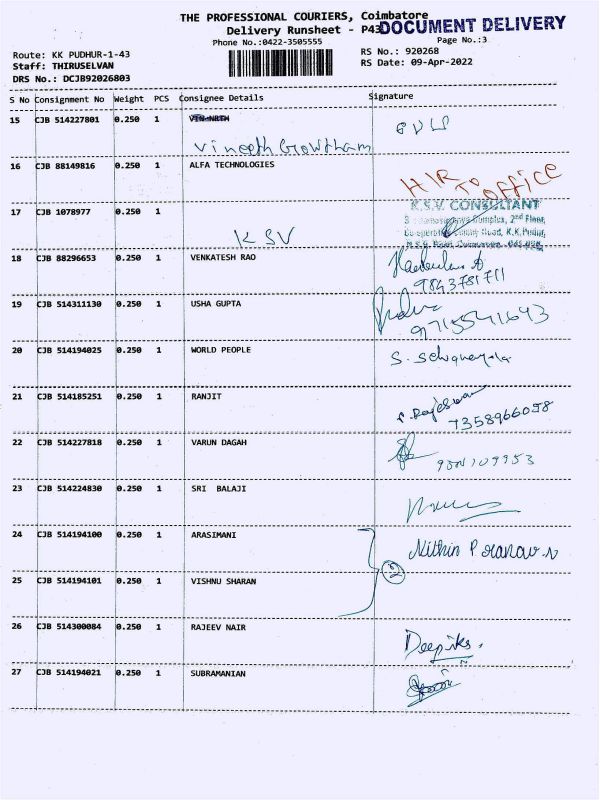 THE PROFESSIONAL COURIERS, Coimbatore
Delivery Runsheet - P43
DOCUMENT DELIVERY
Phone No.:0422-3505555
Page No.:3
Route: KK PUDHUR-1-43
RS No.: 920268
Staff: THIRUSELVAN
RS Date: 09-Apr-2022
DRS No.: DCJB92026803
S No Consignment No Weight PCS Consignee Details Signature
15 CJB 514227801 0.250 1
Vineeth Gowtham
16 CJB 88149816 0.250 1 ALFA TECHNOLOGIES
H/R To office
17 CJB 1078977 0.250 1
KSV
K.S.V. CONSULTANT
Complex, 2nd Floor,
Road, K.K.Pudur,
18 CJB 88296653 0.250 1 VENKATESH RAO
9843781711
19 CJB 514311130 0.250 1 USHA GUPTA
9715541643
20 CJB 514194025 0.250 1 WORLD PEOPLE
S.
21 CJB 514185251 0.250 1 RANJIT
7358966058
22 CJB 514227818 0.250 1 VARUN DAGAH
23 CJB 514224830 0.250 1 SRI BALAJI
24 CJB 514194100 0.250 1 ARASIMANI
Nithin Pranav
2
25 CJB 514194101 0.250 1 VISHNU SHARAN
26 CJB 514300084 0.250 1 RAJEEV NAIR
Deepika.
27 CJB 514194021 0.250 1 SUBRAMANIAN